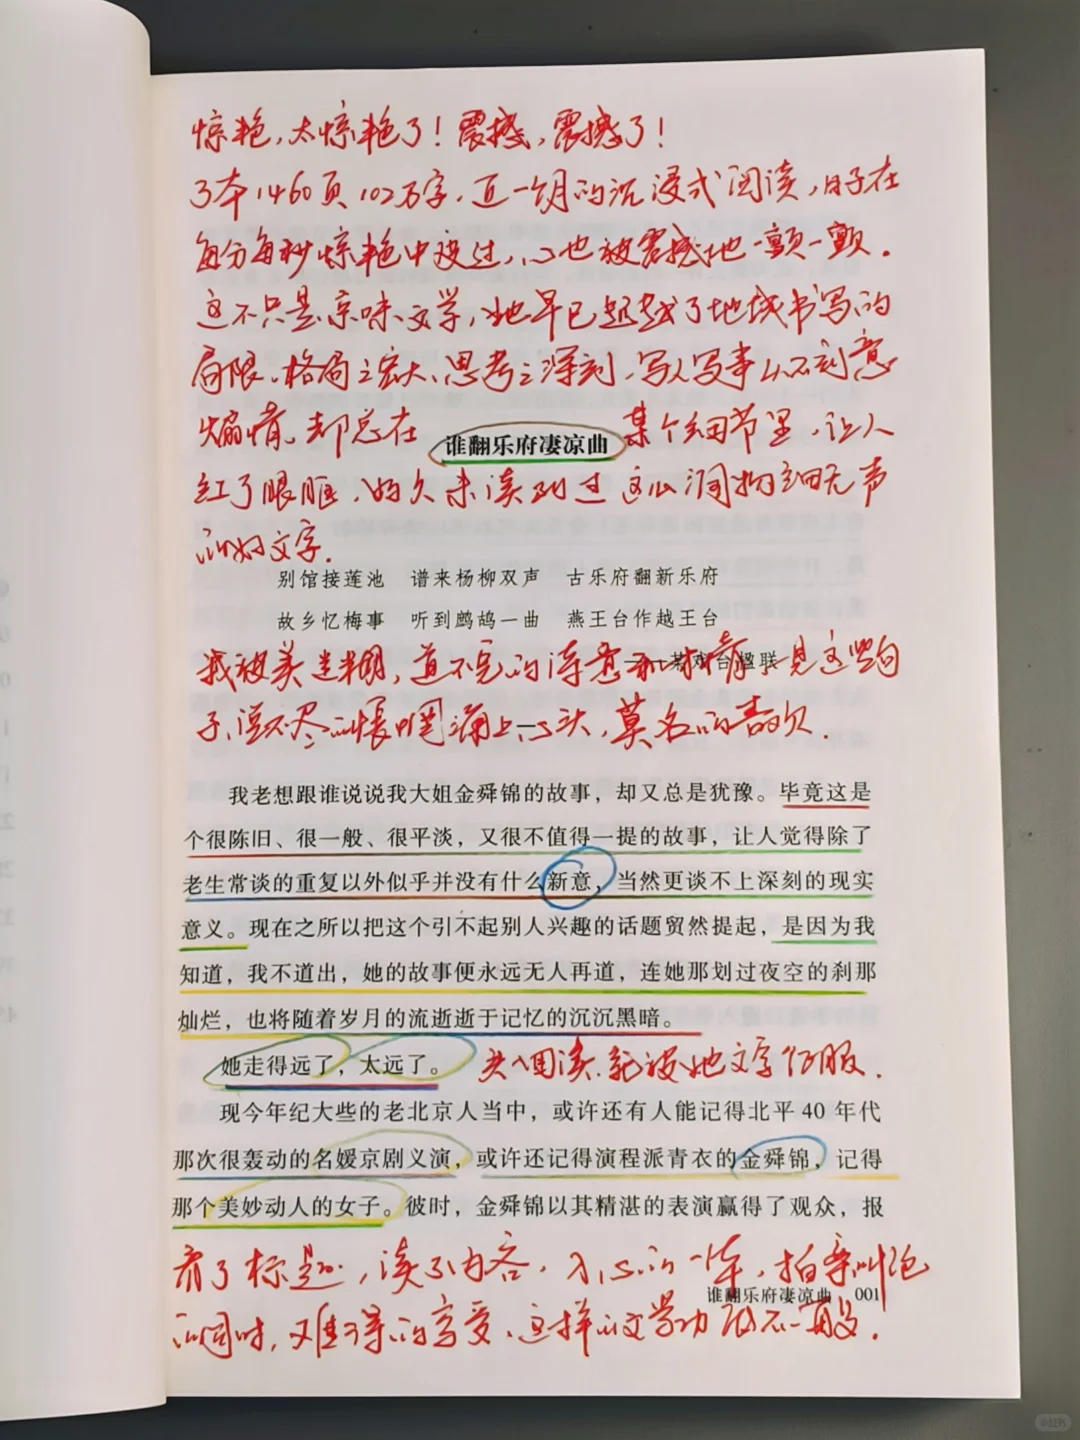 惊艳，太惊艳了！震撼，震撼了！
3本1460页102万字，近一个月的沉浸式阅读，日子在
每分每秒惊艳中度过，心也被震撼地一颤一颤。
这不只是京味文学，她早已超越了地域书写的
局限，格局之宏大，思考之深刻，写人写事从不刻意
煽情，却总在 谁翻乐府凄凉曲 某个细节里，让人
红了眼眶，好久未读到过这么润物细无声
的好文字。
别馆接莲池 谱来杨柳双声 古乐府翻新乐府
故乡忆梅事 听到鹧鸪一曲 燕王台作越王台
戏台楹联
我被美迷糊，道不完的诗意和才情，一见这些句
子，说不尽的怅惘涌上心头，莫名的喜欢。
我老想跟谁说说我大姐金舜锦的故事，却又总是犹豫。毕竟这是
个很陈旧、很一般、很平淡，又很不值得一提的故事，让人觉得除了
老生常谈的重复以外似乎并没有什么新意，当然更谈不上深刻的现实
意义。现在之所以把这个引不起别人兴趣的话题贸然提起，是因为我
知道，我不道出，她的故事便永远无人再道，连她那划过夜空的刹那
灿烂，也将随着岁月的流逝逝于记忆的沉沉黑暗。
她走得远了，太远了。 读，就被她文字征服。
现今年纪大些的老北京人当中，或许还有人能记得北平 40 年代
那次很轰动的名媛京剧义演，或许还记得演程派青衣的金舜锦，记得
那个美妙动人的女子。彼时，金舜锦以其精湛的表演赢得了观众，报
看了标题，读了内容，入心的一本，拍案叫绝
谁翻乐府凄凉曲 001
的同时，又难得的享受，这样的文学功底不一般。